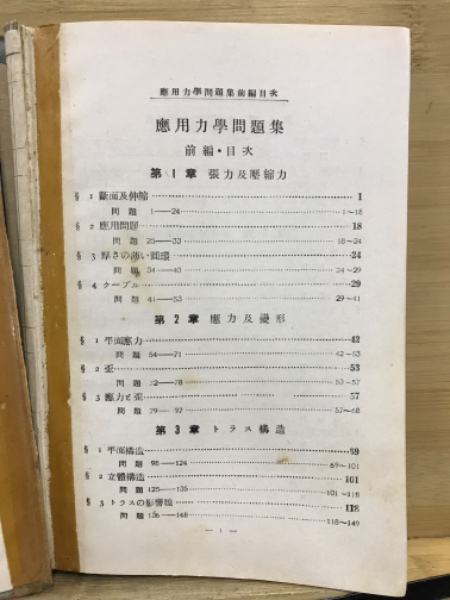 應用力學問題集前編目次
應用力學問題集
前編・目次
第1章 張力及壓縮力
§ 1 斷面及伸縮 1
問題 1—24 1~18
§ 2 應用問題 18
問題 25—33 18~24
§ 3 厚さの薄い圓環 24
問題 34—40 24~29
§ 4 ケーブル 29
問題 41—53 29~41
第2章 應力及變形
§ 1 平面應力 42
問題 54—71 42~53
§ 2 歪 53
問題 72—78 53~57
§ 3 應力と歪 57
問題 79—97 57~68
第3章 トラス構造
§ 1 平面構造 69
問題 98—124 69~101
§ 2 立體構造 101
問題 125—135 101~118
§ 3 トラスの影響線 118
問題 136—148 118~149
— 1 —